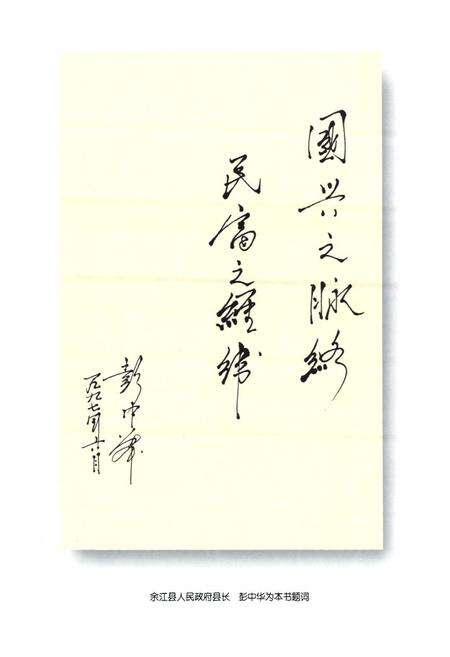 國兴之脉络
民富之經緯
彭中华
一九九七年六月
余江县人民政府县长 彭中华为本书题词